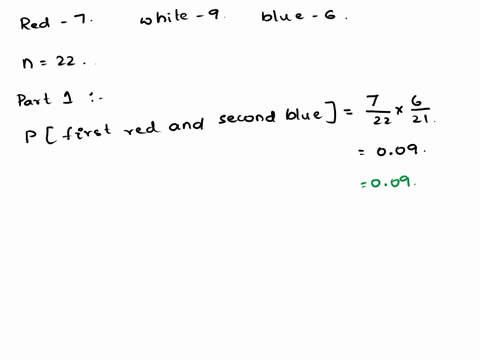 Red - 7. white - 9. blue - 6.
n = 22.
Part 1 :-
P [ first red and second blue ] = 7/22 × 6/21.
= 0.09.
= 0.09.